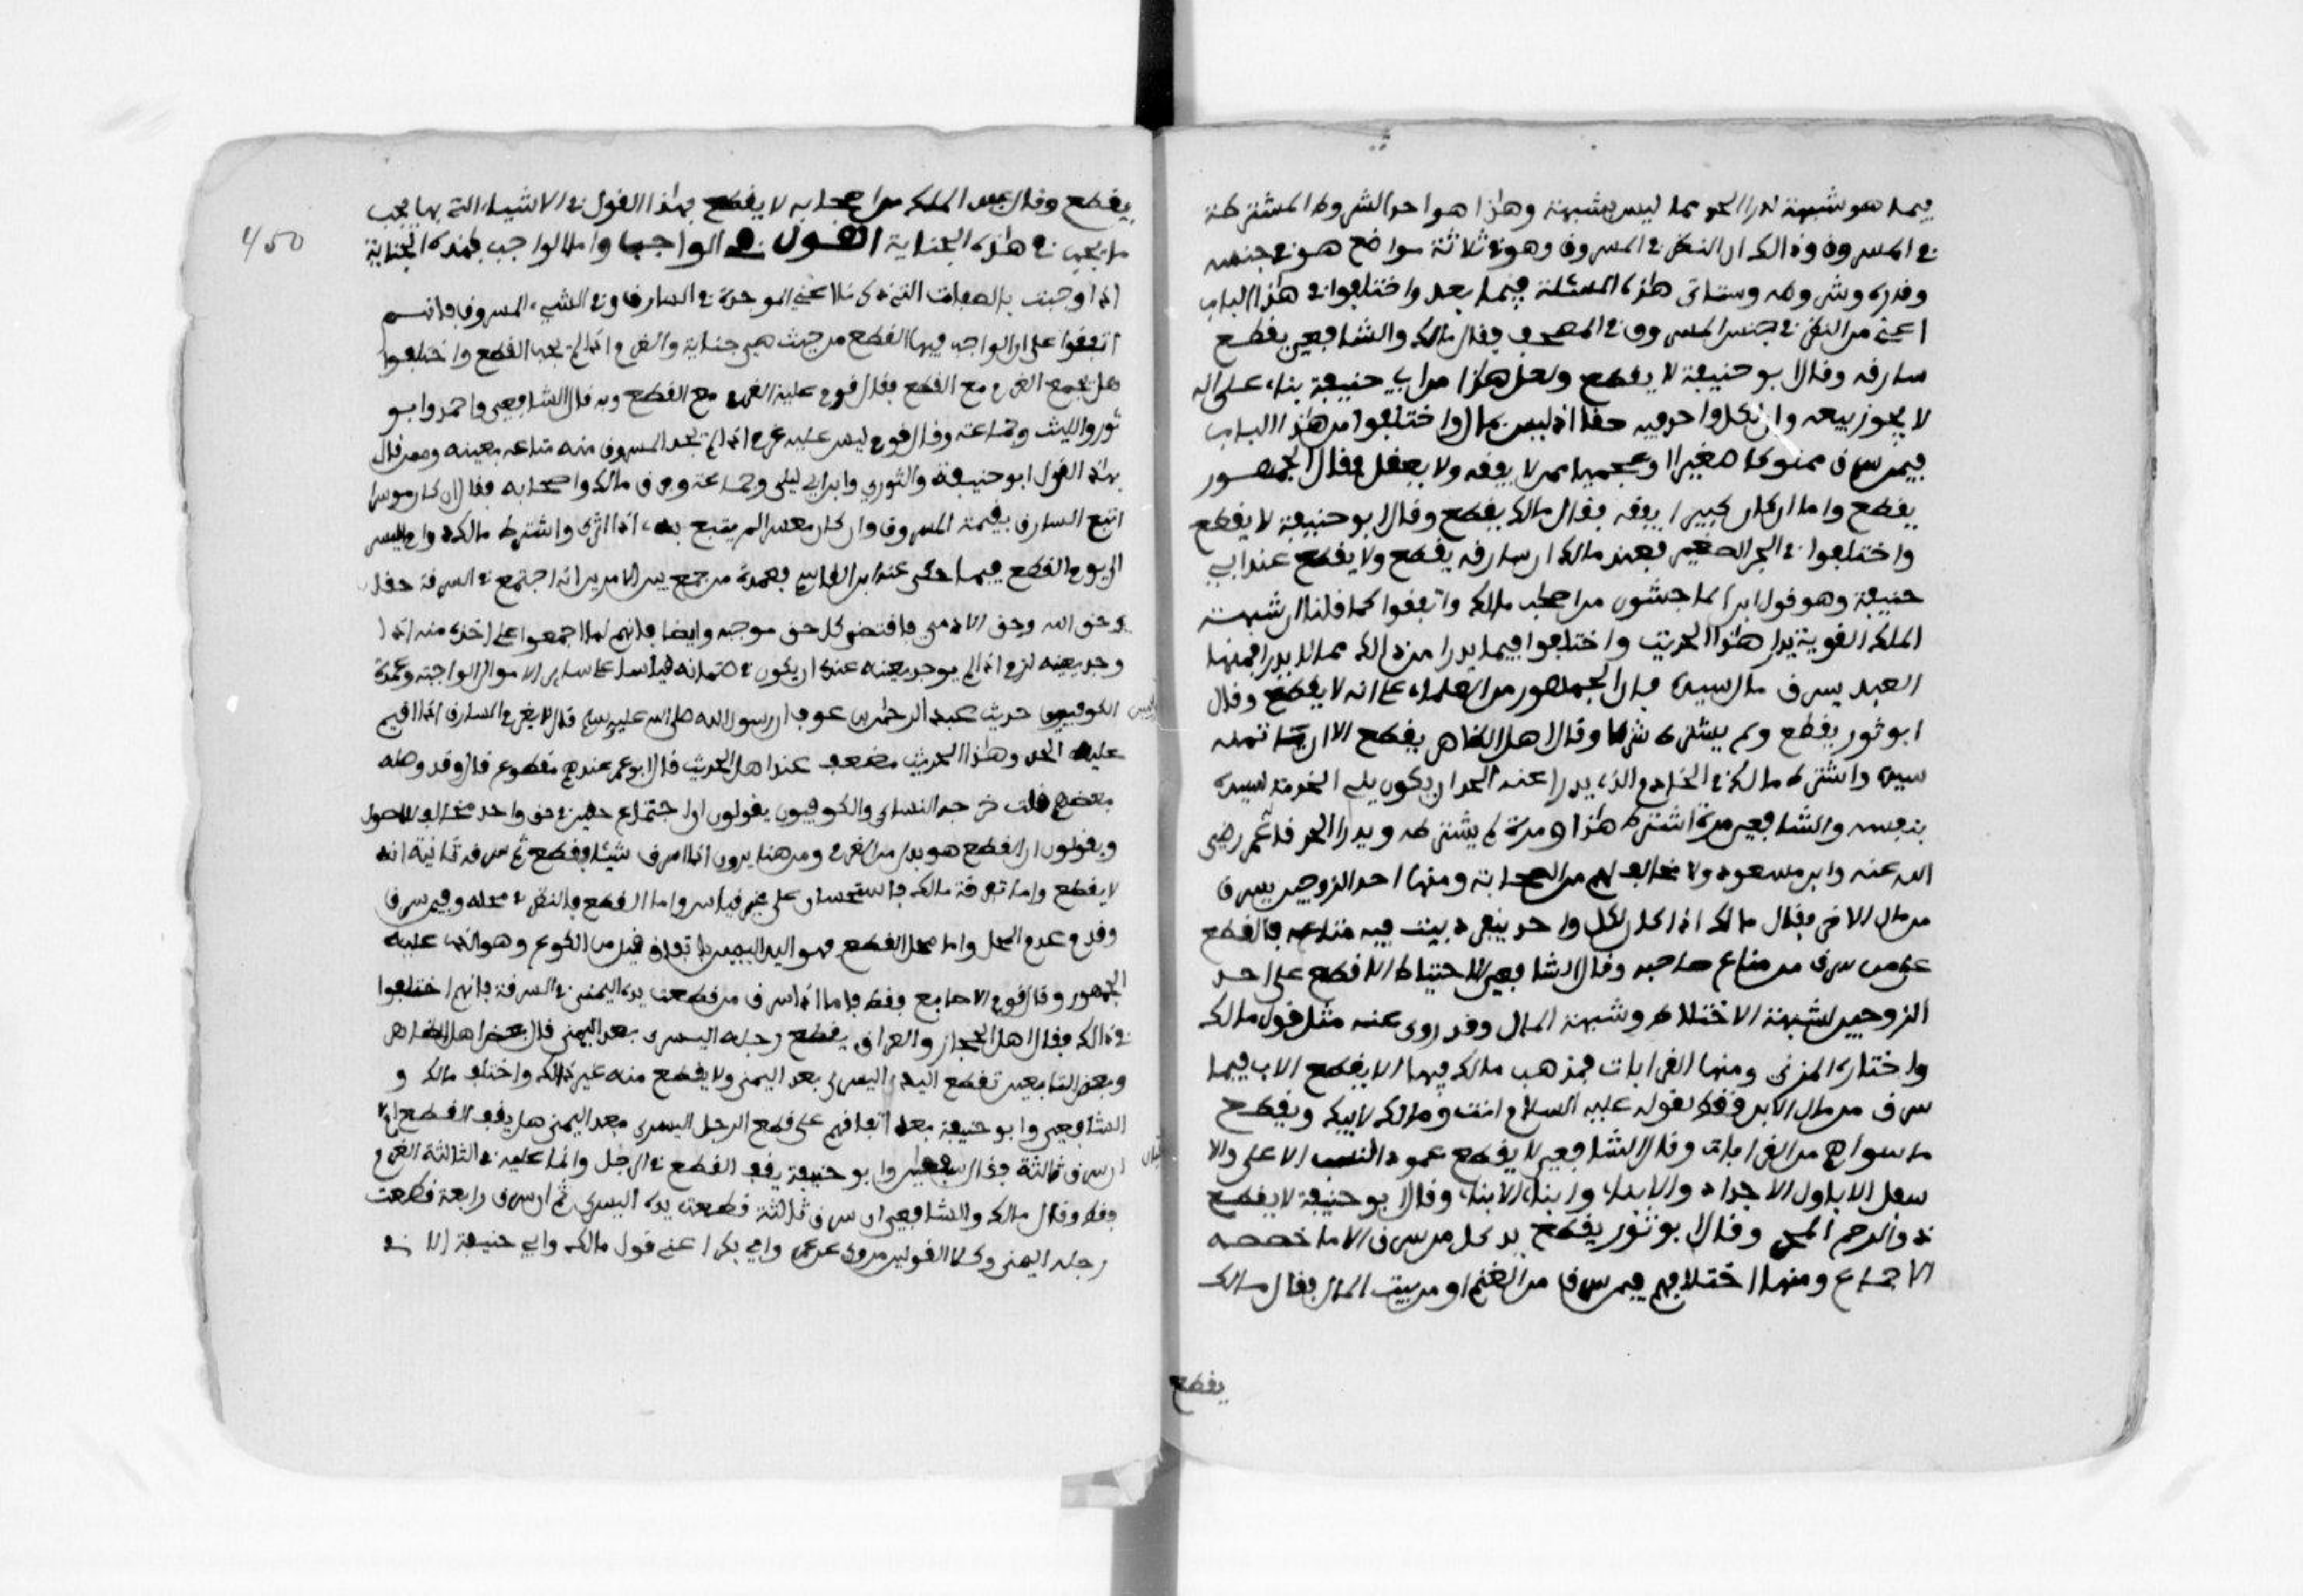 فيما هو شبهة تدرأ الحد مما ليس بشبهة وهذا هو احد الشروط المشترطة
في المسروق وذالك ان النظر في المسروق وهو في ثلاثة مواضع هو في جنسه
وقدره وشروطه وستاتي هذه المسئلة فيما بعد واختلفوا في هذا الباب
اعني من النظر في جنس المسروق في المصحف فقال مالك والشافعي يقطع
سارقه وقال ابو حنيفة لا يقطع ولعل هذا من ابي حنيفة بناء على انه
لا يجوز بيعه وان لكل واحد فيه حقا اذ ليس بمال واختلفوا من هذا الباب
فيمن سرق مملوكا صغيرا او عجميا ممن لا يفقه ولا يعقل فقال الجمهور
يقطع واما ان كان كبيرا يفقه فقال مالك يقطع وقال ابو حنيفة لا يقطع
واختلفوا في الحر الصغير فعند مالك ان سارقه يقطع ولا يقطع عند ابي
حنيفة وهو قول ابن الماجشون من اصحاب مالك واتفقوا كما قلنا ان شبهة
الملك القوية تدرأ هذا الحد واختلفوا فيما يدرأ من ذالك مما لا يدرأ فمنها
العبد يسرق مال سيده فان الجمهور من العلماء على انه لا يقطع وقال
ابو ثور يقطع ولم يشترط شرطا وقال اهل الظاهر يقطع الا ان ياتمنه
سيده واشترط مالك في الخادم الذي يدرأ عنه الحد ان يكون يلي الخدمة لسيده
بنفسه والشافعي مرة اشترط هذا ومرة لم يشترطه ويدرأ الحد قال عمر رضي
الله عنه وابن مسعود ولا مخالف لهم من الصحابة ومنها احد الزوجين يسرق
من مال الاخر فقال مالك اذا كان لكل واحد ينفرد ببيت فيه متاعه فالقطع
على من سرق من متاع صاحبه وقال الشافعي الاحتياط الا قطع على احد
الزوجين لشبهة الاختلاط وشبهة المال وقد روي عنه مثل قول مالك
واختاره المزني ومنها القرابات فمذهب مالك فيها الا يقطع الاب فيما
سرق من مال الابن فقط لقوله عليه السلام انت ومالك لابيك ويقطع
ما سواهم من القرابات وقال الشافعي لا يقطع عمود النسب الاعلى والا
سفل الاباوالاجداد والابناء وابناء الابناء وقال ابو حنيفة لا يقطع
ذو الرحم المحرم وقال ابو ثور يقطع يد كل من سرق الا ما خصصه
الاجماع ومنها اختلافهم فيمن سرق من الغنم او من بيت المال فقال مالك
يقطع
450
يقطع وقال عبد الملك من اصحابه لا يقطع فهذا القول في الاشياء التي بها يجب
ما يجب في هذه الجناية القول في الواجب واما الواجب بهذه الجناية
اذا وجبت بالصفات التي ذكرنا اعني الموجودة في السارق وفي الشيء المسروق فانهم
اتفقوا على ان الواجب فيها القطع من حيث هي جناية والغرم اذا لم يجب القطع واختلفوا
هل يجمع الغرم مع القطع فقال قوم عليه الغرم مع القطع وبه قال الشافعي واحمد وابو
ثور والليث وجماعة وقال قوم ليس عليه غرم اذا لم يجد المسروق منه متاعه بعينه وممن قال
بهذا القول ابو حنيفة والثوري وابن ابي ليلى وجماعة وفرق مالك واصحابه فقال ان كان موسرا
اتبع السارق بقيمة المسروق وان كان معسرا لم يتبع به اذا اثرى واشترط مالك دوام اليسر
الى يوم القطع فيما حكى عنه ابن القاسم فعمدة من جمع بين الامرين انه اجتمع في السرقة حقان
حق الله وحق الادمي فاقتضى كل حق موجبه وايضا فانهم لما اجمعوا على اخذه منه اذا
وجد بعينه لزم اذا لم يوجد بعينه عنده ان يكون في ضمانه قياسا على ساير الاموال الواجبة وعمدة
الكوفيين حديث عبد الرحمان بن عوف ان رسول الله صلى الله عليه وسلم قال لا يغرم السارق اذا اقيم
عليه الحد وهذا الحديث مضعف عند اهل الحديث قال ابو عمر عندهم مقطوع قال وقد وصله
بعضهم قلت خرجه النساي والكوفيون يقولون ان اجتماع حقين في حق واحد مخالف للاصول
ويقولون ان القطع هو بدل من الغرم ومن هنا يرون اذا سرق شيئا فقطع ثم سرقه ثانية انه
لا يقطع واما تفرقة مالك فاستحسان على غير قياس واما القطع فالنظر في محله وفيمن سرق
وقد عدم المحل واما محل القطع فهو اليد اليمين باتفاق من الكوع وهو الذي عليه
الجمهور وقال قوم الاصابع فقط فاما اذا سرق من قطعت يده اليمنى في السرقة فانهم اختلفوا
في ذالك فقال اهل الحجاز والعراق يقطع رجله اليسرى بعد اليمنى قال بعض اهل الظاهر
وبعض التابعين تقطع اليد اليسرى بعد اليمنى ولا يقطع منه غير ذالك واختلف مالك و
الشافعي وابو حنيفة بعد اتفاقهم على قطع الرجل اليسرى بعد اليمنى هل يقف القطع ام لا
ان سرق ثالثة فقال سفيان وابو حنيفة يقف القطع في الرجل وانما عليه في الثالثة الغرم
فقط وقال مالك والشافعي ان سرق ثالثة قطعت يده اليسرى ثم ان سرق رابعة قطعت
رجله اليمنى وكلا القولين مروي عن عمر وابي بكر اعني قول مالك وابي حنيفة